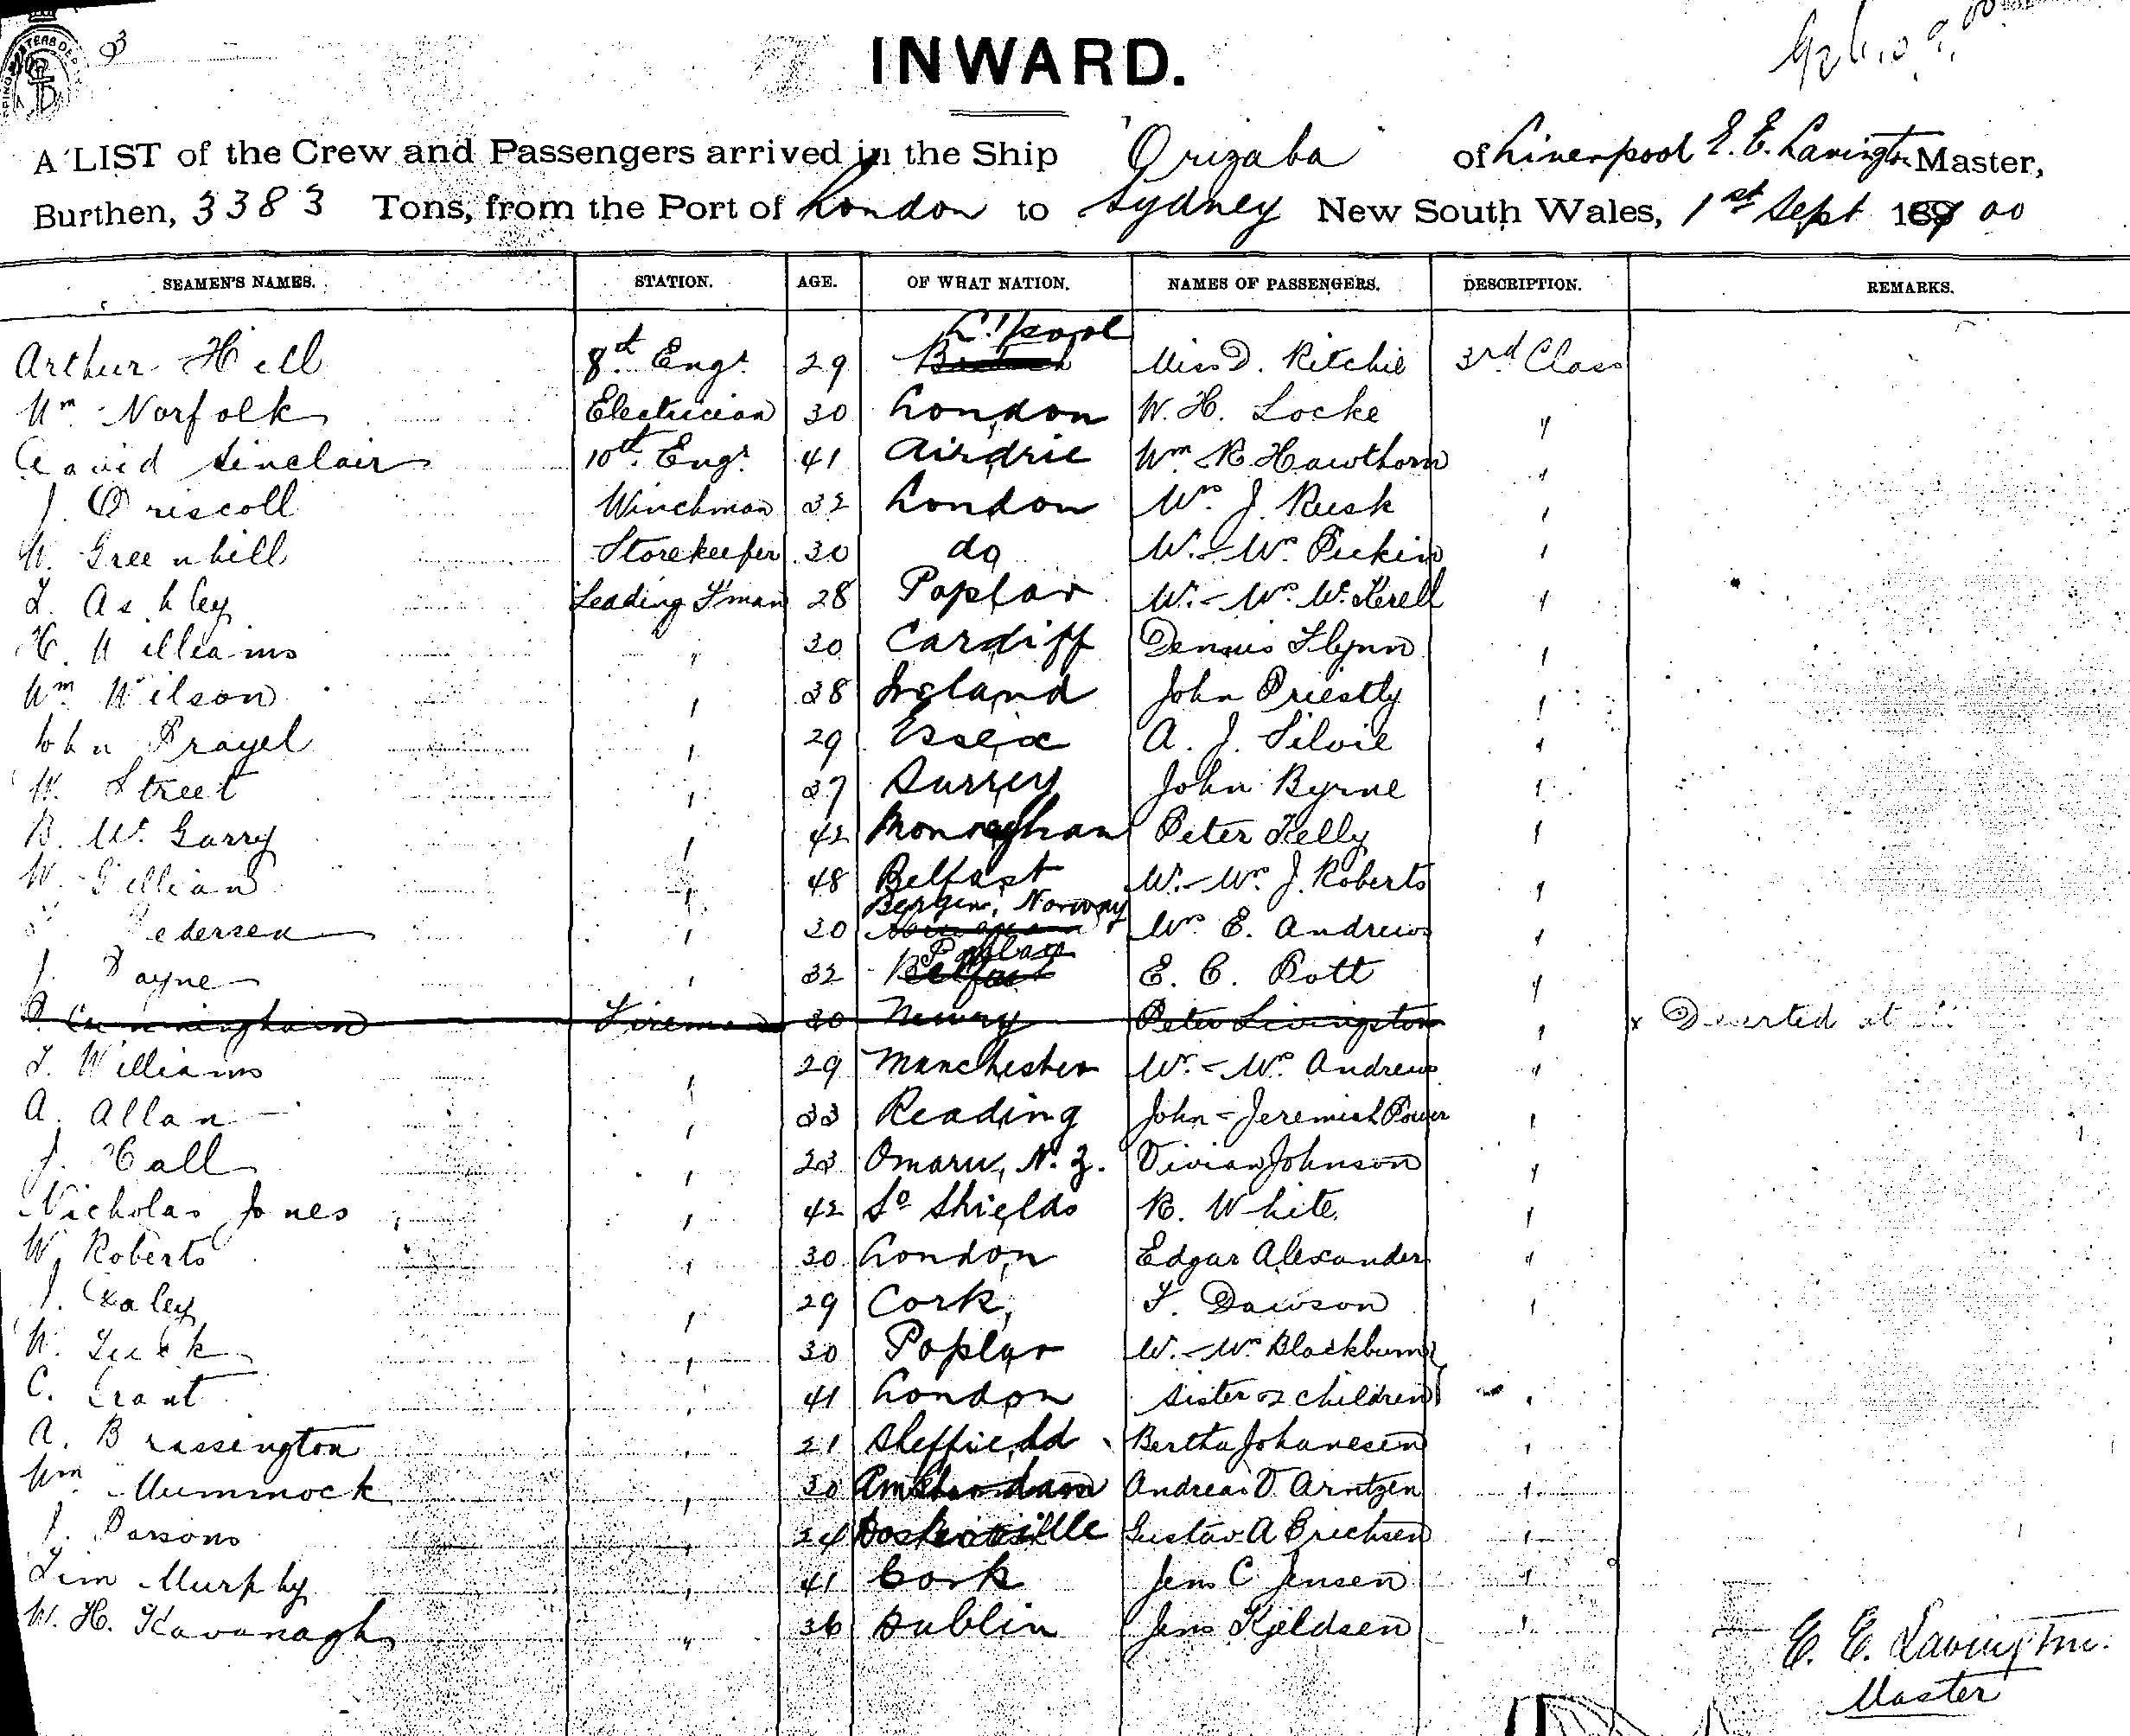 INWARD.
A LIST of the Crew and Passengers arrived in the Ship "Orizaba" of Liverpool E. E. Lavington Master,
Burthen, 3383 Tons, from the Port of London to Sydney New South Wales, 1st Sept 1900
SEAMEN'S NAMES. STATION. AGE. OF WHAT NATION. NAMES OF PASSENGERS. DESCRIPTION. REMARKS.
Arthur Hill 8th Engr 29 L'pool Miss D. Ritchie 3rd Class
Wm Norfolk Electrician 30 London W. H. Locke "
David Sinclair 10th Engr 41 Airdrie Wm R. Hawthorn "
J. Driscoll Winchman 32 London Mrs J. Rusk "
W. Greenhill Storekeeper 30 do Mr. - Mrs Peckin "
T. Ashley Leading F'man 28 Poplar Mr. - Mrs W. Kerell "
H. Williams " 30 Cardiff Dennis Flynn "
Wm Wilson " 38 Ireland John Priestly "
John Prayel " 29 Essex A. J. Silvie "
W. Street " 37 Surrey John Byrne "
B. McGarry " 42 Monaghan Peter Kelly "
W. Gillian " 48 Belfast Mr. - Mrs J. Roberts "
Pedersen " 30 Bergen, Norway Mrs E. Andrews "
J. Payne " 32 Poplar Belfast E. C. Pott "
P. Cunningham Fireman 30 Newry Peter Livingston " x Deserted at
T. Williams " 29 Manchester Mr. - Mrs Andrews "
A. Allan " 33 Reading John - Jeremiah Power "
J. Hall " 23 Omaru, N. Z. Vivian Johnson "
Nicholas Jones " 42 So Shields R. White "
W. Roberts " 30 London Edgar Alexander "
J. Daley " 29 Cork, F. Dawson "
W. Tuck " 30 Poplar Mr. - Mrs Blackburn
C. Grant " 41 London sister & 2 children "
A. Brassington " 21 Sheffield Bertha Johanesen "
Wm Mummock " 30 Amsterdam Andreas D. Arntzen "
J. Parsons " 24 Gustav A Erichsen "
Tim Murphy " 41 Cork Jens C Jensen "
W. H. Kavanagh " 36 Dublin Jens Kjeldsen "
E. E. Lavington.
Master